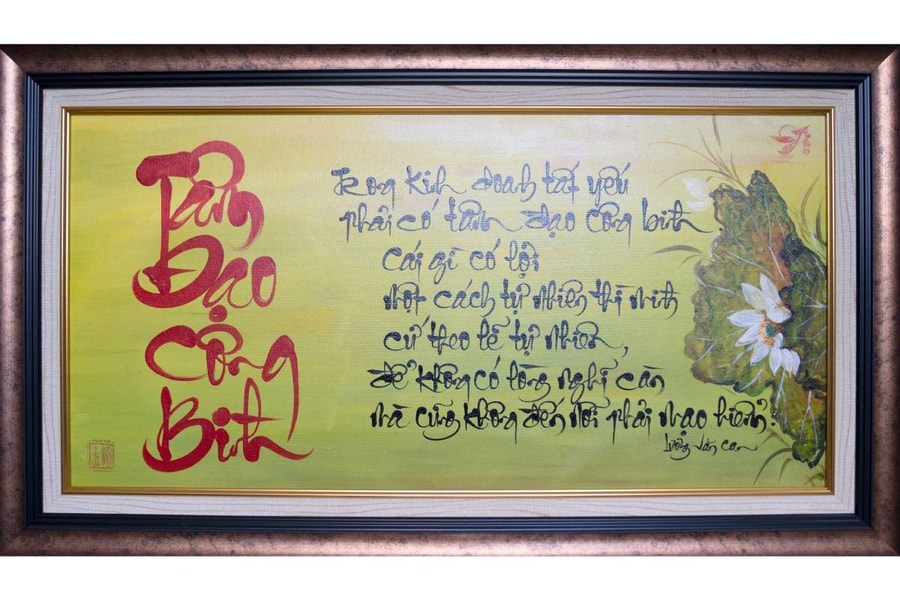 Tâm
Đạo
Công
Bình
Trong kinh doanh tất yếu
phải có tâm đạo công bình
Cái gì có lợi
một cách tự nhiên thì mình
cứ theo lẽ tự nhiên,
để không có lòng nghi càn
mà cũng không đến nỗi phải mạo hiểm.
Lương Văn Can